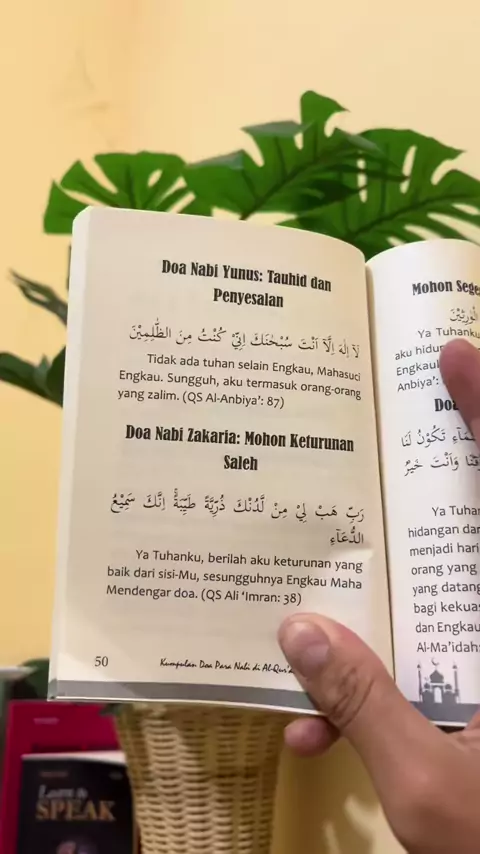 Doa Nabi Yunus: Tauhid dan
Penyesalan
لَآ اِلٰهَ اِلَّآ اَنْتَ سُبْحٰنَكَ اِنِّيْ كُنْتُ مِنَ الظّٰلِمِيْنَ
Tidak ada tuhan selain Engkau, Mahasuci
Engkau. Sungguh, aku termasuk orang-orang
yang zalim. (QS Al-Anbiya': 87)
Doa Nabi Zakaria: Mohon Keturunan
Saleh
رَبِّ هَبْ لِيْ مِنْ لَّدُنْكَ ذُرِّيَّةً طَيِّبَةً ۚ اِنَّكَ سَمِيْعُ
الدُّعَاۤءِ
Ya Tuhanku, berilah aku keturunan yang
baik dari sisi-Mu, sesungguhnya Engkau Maha
Mendengar doa. (QS Ali 'Imran: 38)
50
Kumpulan Doa Para Nabi di Al-Qur'a
Mohon Sege
الْوٰرِثِيْنَ
Ya Tuhanku
aku hidup
Engkaul
Anbiya':
Doa
تَكُوْنُ لَنَا
وَاَنْتَ خَيْرُ
Ya Tuhan
hidangan dar
menjadi hari
orang yang
yang datang
bagi kekuas
dan Engkau
Al-Ma'idah:
Learn to
SPEAK